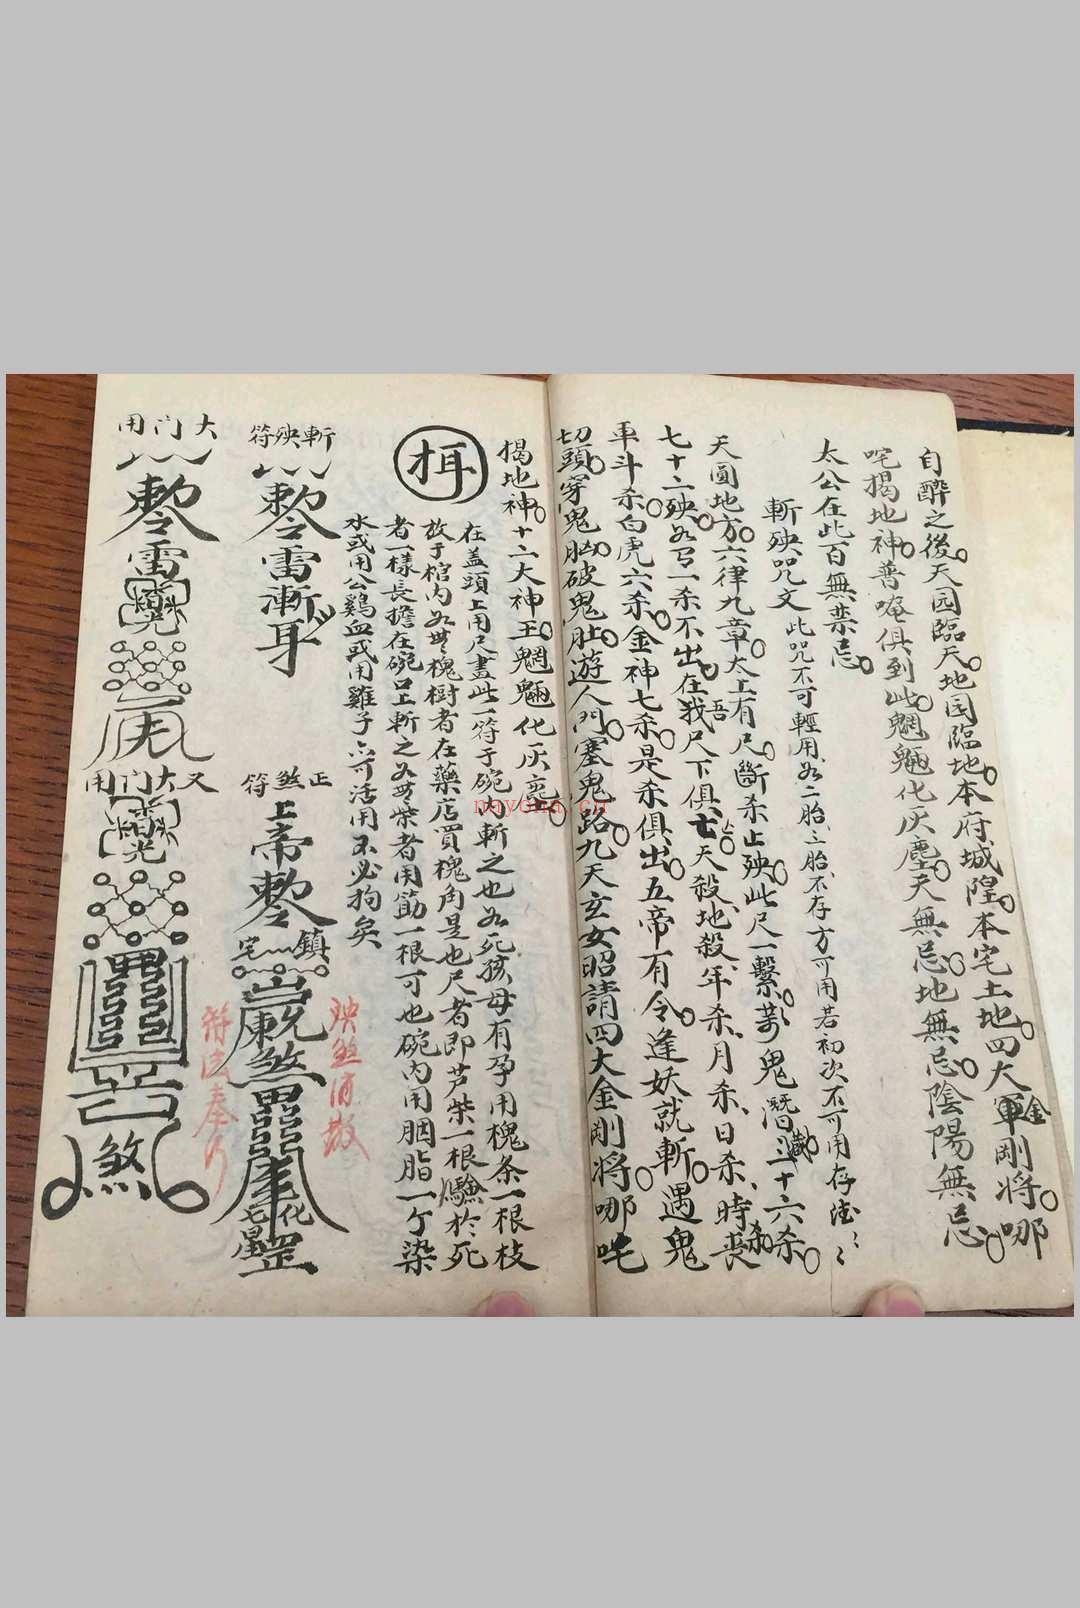 自醉之後天园臨天地园臨地本府城隍本宅土地四大金剛將哪
吒揭地神普唵俱到此魍魎化灰塵天無忌地無忌陰陽無忌
太公在此百無禁忌
斬殃咒文此咒不可輕用如二胎三胎不存方可用若初次不可用存
天圓地方六律九章太上有尺斷杀止殃此尺一繫萬鬼潛藏三十六杀
七十二殃如一杀不出在吾尺下俱亡天殺地殺年杀月杀日杀時杀喪
車斗杀白虎六杀金神七杀是杀俱出五帝有令逢妖就斬遇鬼
切頭穿鬼胸破鬼肚遊人門塞鬼路九天玄女昭請四大金剛將哪吒
揭地神十二大神王魍魎化灰塵
在盖頭上用尺畫此一符于碗内斬之也如死孩母有孕用槐条一根枝
放于棺内如無槐樹者在藥店買槐角是也尺者即芦柴一根驗於死
者一樣長擔在碗口上斬之如無柴者用筯一根可也碗内用胭脂一个染
水或用公鷄血或用雞子亦可活用不必拘矣
斬殃符
敕令雷漸耳
正煞符
上帝敕令
鎮宅
煞
化
七星罡
殃煞消散
大門用
敕令雷
又大門用
煞
符法奉行
nayona.cn